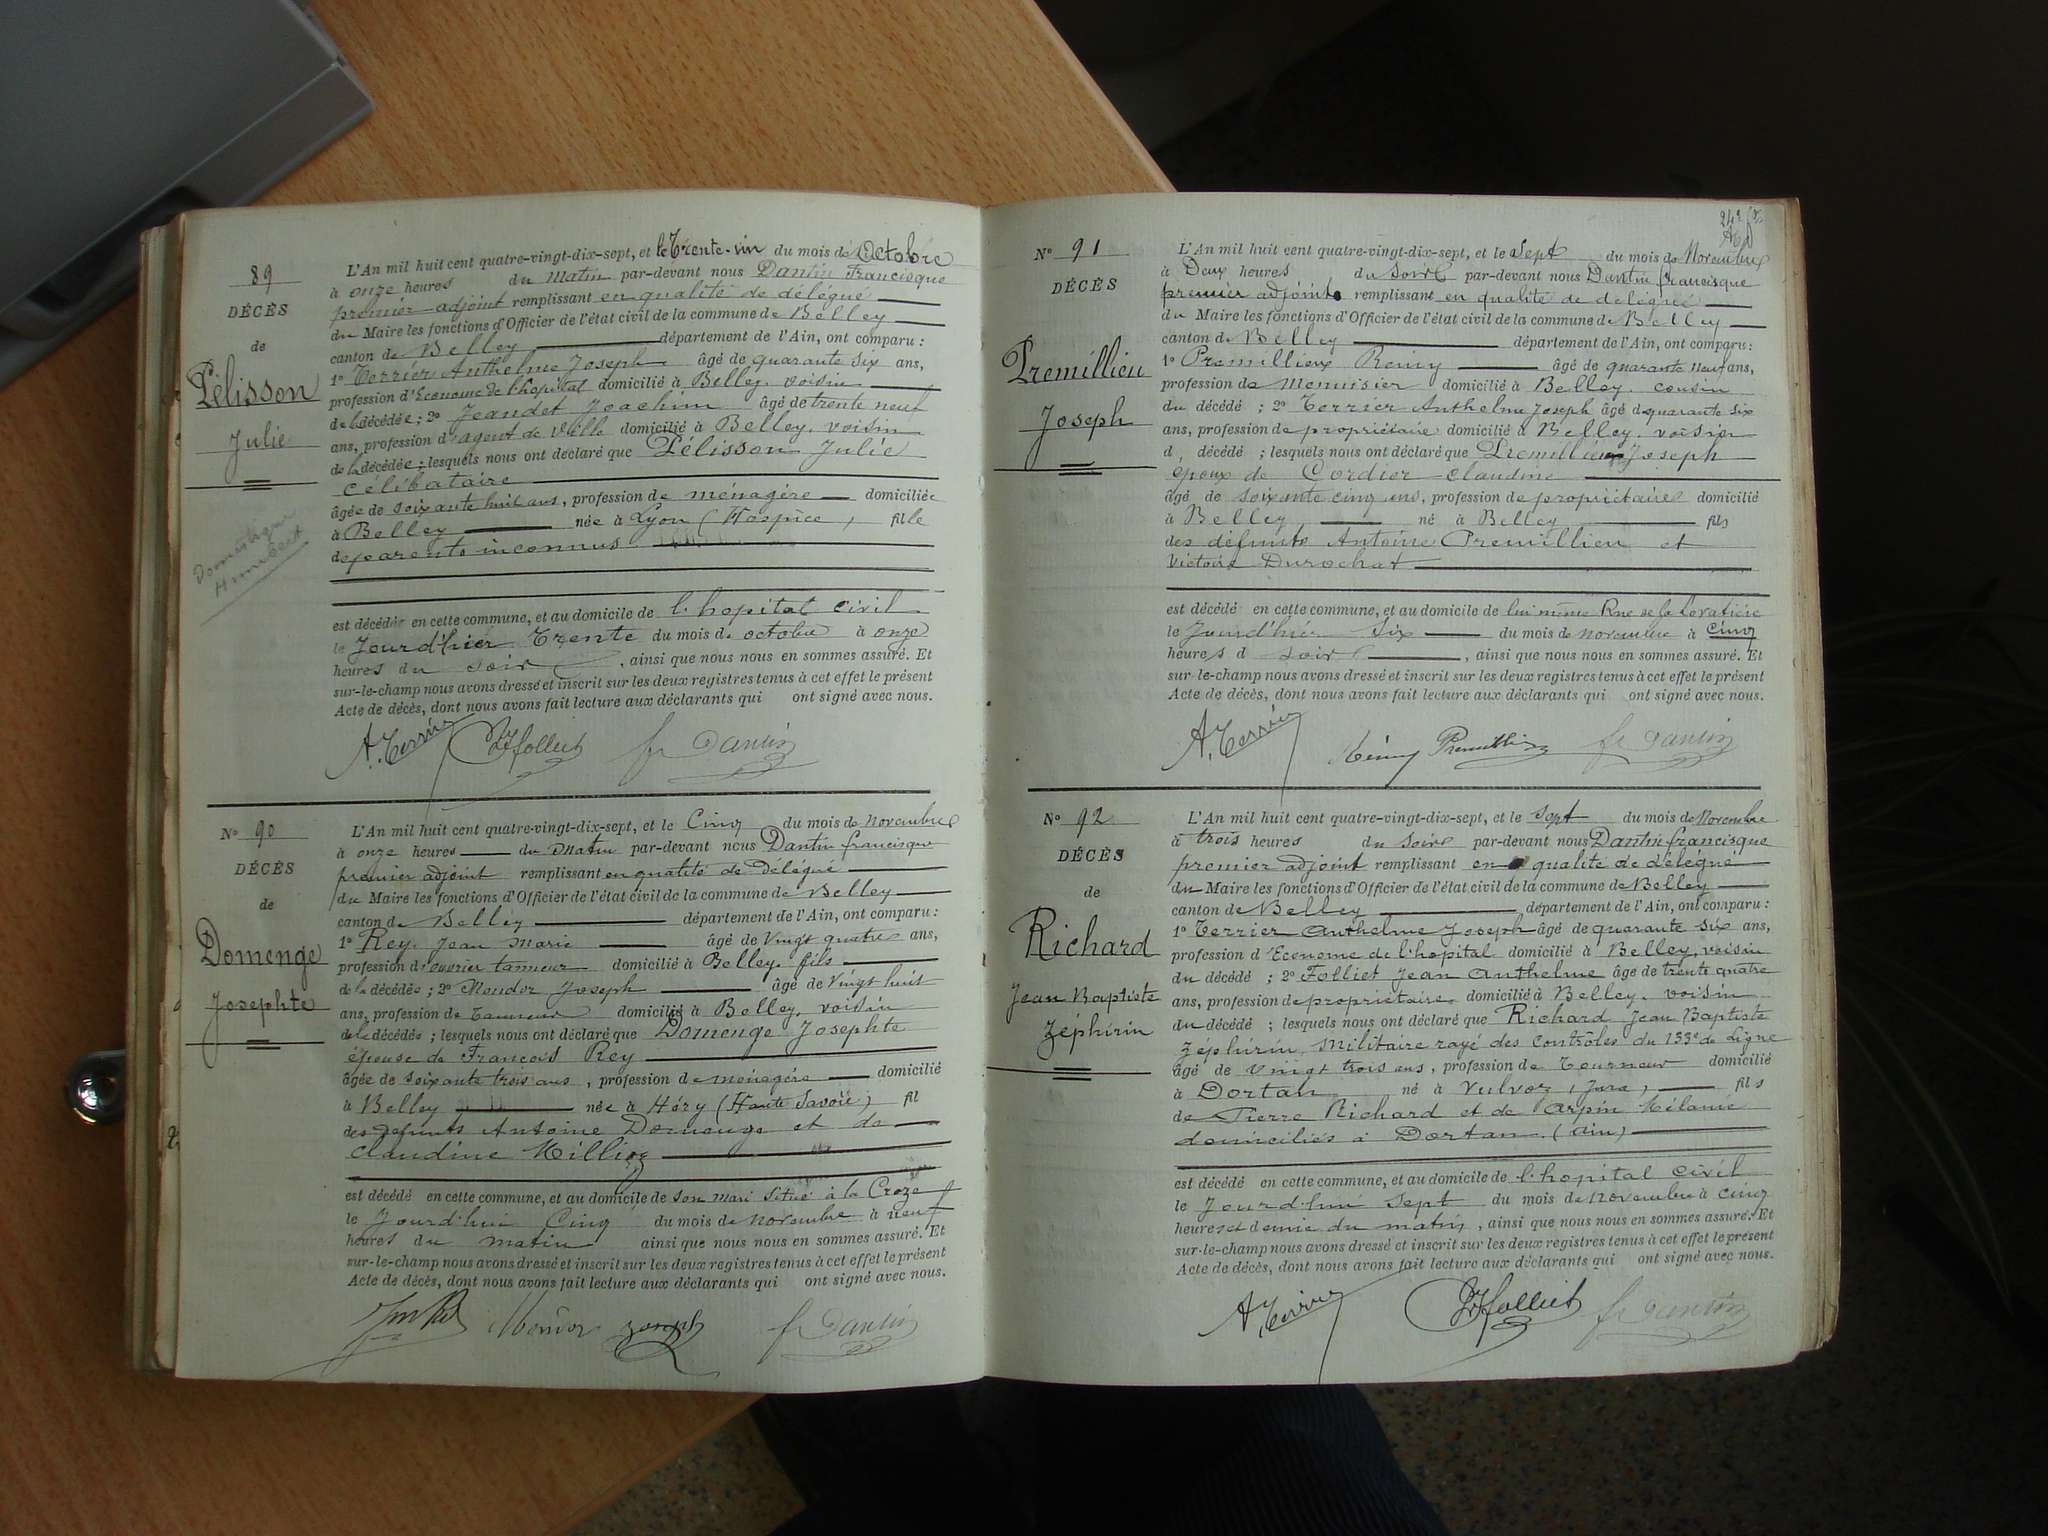 89
DÉCÈS
de
Pélisson
Julie
Domestique
Humbert
L'An mil huit cent quatre-vingt-dix-sept, et le Trente-un du mois de Octobre
à onze heures du Matin par-devant nous Dantin Francisque
premier adjoint remplissant en qualité de délégué
du Maire les fonctions d'Officier de l'état civil de la commune de Belley
canton de Belley département de l'Ain, ont comparu :
1º Terrier Anthelme Joseph âgé de quarante six ans,
profession d'Econome de l'hopital domicilié à Belley. voisin
de la décédée ; 2º Jeandet Joachim âgé de trente neuf
ans, profession d'agent de ville domicilié à Belley. voisin
de la décédée ; lesquels nous ont déclaré que Pélisson Julie
célibataire
âgée de soixante huit ans, profession de ménagère domiciliée
à Belley née à Lyon (Hospice) fille
de parents inconnus
est décédée en cette commune, et au domicile de l'hopital civil
le Jourd'hier Trente du mois de octobre à onze
heures du soir , ainsi que nous nous en sommes assuré. Et
sur-le-champ nous avons dressé et inscrit sur les deux registres tenus à cet effet le présent
Acte de décès, dont nous avons fait lecture aux déclarants qui ont signé avec nous.
A. Terrier Folliet fr Dantin
Nº 90
DÉCÈS
de
Domenge
Josephte
L'An mil huit cent quatre-vingt-dix-sept, et le Cinq du mois de Novembre
à onze heures du Matin par-devant nous Dantin francisque
premier adjoint remplissant en qualité de Délégué
du Maire les fonctions d'Officier de l'état civil de la commune de Belley
canton de Belley département de l'Ain, ont comparu :
1º Rey. Jean Marie âgé de Vingt quatre ans,
profession d'ouvrier tanneur domicilié à Belley. fils
de la décédée ; 2º Mondor Joseph âgé de Vingt huit
ans, profession de Tanneur domicilié à Belley, voisin
de la décédée ; lesquels nous ont déclaré que Domenge Josephte
épouse de François Rey
âgée de soixante trois ans , profession de ménagère domicilié
à Belley née à Héry (Haute Savoie) fil
des defunts Antoine Domenge et de
Claudine Millioz
est décédé en cette commune, et au domicile de son mari situé à la Croze
le Jourd'hui Cinq du mois de Novembre à neuf
heures du matin ainsi que nous nous en sommes assuré. Et
sur-le-champ nous avons dressé et inscrit sur les deux registres tenus à cet effet le présent
Acte de décès, dont nous avons fait lecture aux déclarants qui ont signé avec nous.
Mondor Joseph fr Dantin
Nº 91
DÉCÈS
Premillieu
Joseph
L'An mil huit cent quatre-vingt-dix-sept, et le sept du mois de Novembre
à Deux heures du soir par-devant nous Dantin francisque
premier adjoint remplissant en qualité de délégué
du Maire les fonctions d'Officier de l'état civil de la commune de Belley
canton de Belley département de l'Ain, ont comparu :
1º Premillieu Remy âgé de quarante neuf ans,
profession de Menuisier domicilié à Belley. cousin
du décédé ; 2º Terrier Anthelme Joseph âgé de quarante six
ans, profession de propriétaire domicilié à Belley. voisin
d décédé ; lesquels nous ont déclaré que Premillieu Joseph
époux de Cordier Claudine
âgé de soixante cinq ans, profession de propriétaire domicilié
à Belley né à Belley fils
des défunts Antoine Premillieu et
Victoire Durochat
est décédé en cette commune, et au domicile de lui même Rue de la
le Jourd'hier Six du mois de novembre à cinq
heures d soir , ainsi que nous nous en sommes assuré. Et
sur-le-champ nous avons dressé et inscrit sur les deux registres tenus à cet effet le présent
Acte de décès, dont nous avons fait lecture aux déclarants qui ont signé avec nous.
A. Terrier Rémy Premillieu fr Dantin
Nº 92
DÉCÈS
de
Richard
Jean Baptiste
Zéphirin
L'An mil huit cent quatre-vingt-dix-sept, et le sept du mois de Novembre
à trois heures du soir par-devant nous Dantin francisque
premier adjoint remplissant en qualité de délégué
du Maire les fonctions d'Officier de l'état civil de la commune de Belley
canton de Belley département de l'Ain, ont comparu :
1º Terrier Anthelme Joseph âgé de quarante six ans,
profession d'Econome de l'hopital domicilié à Belley. voisin
du décédé ; 2º Folliet Jean Anthelme âgé de trente quatre
ans, profession de propriétaire domicilié à Belley. voisin
du décédé ; lesquels nous ont déclaré que Richard Jean Baptiste
Zéphirin, Militaire rayé des Contrôles du 133e de Ligne
âgé de vingt trois ans, profession de Tourneur domicilié
à Dortan né à Vulvoz (Jura) fils
de Pierre Richard et de Arpin Mélanie
domiciliés à Dortan (Ain)
est décédé en cette commune, et au domicile de l'hopital civil
le Jourd'hui sept du mois de novembre à cinq
heures demie du matin , ainsi que nous nous en sommes assuré. Et
sur-le-champ nous avons dressé et inscrit sur les deux registres tenus à cet effet le présent
Acte de décès, dont nous avons fait lecture aux déclarants qui ont signé avec nous.
A. Terrier Folliet fr Dantin